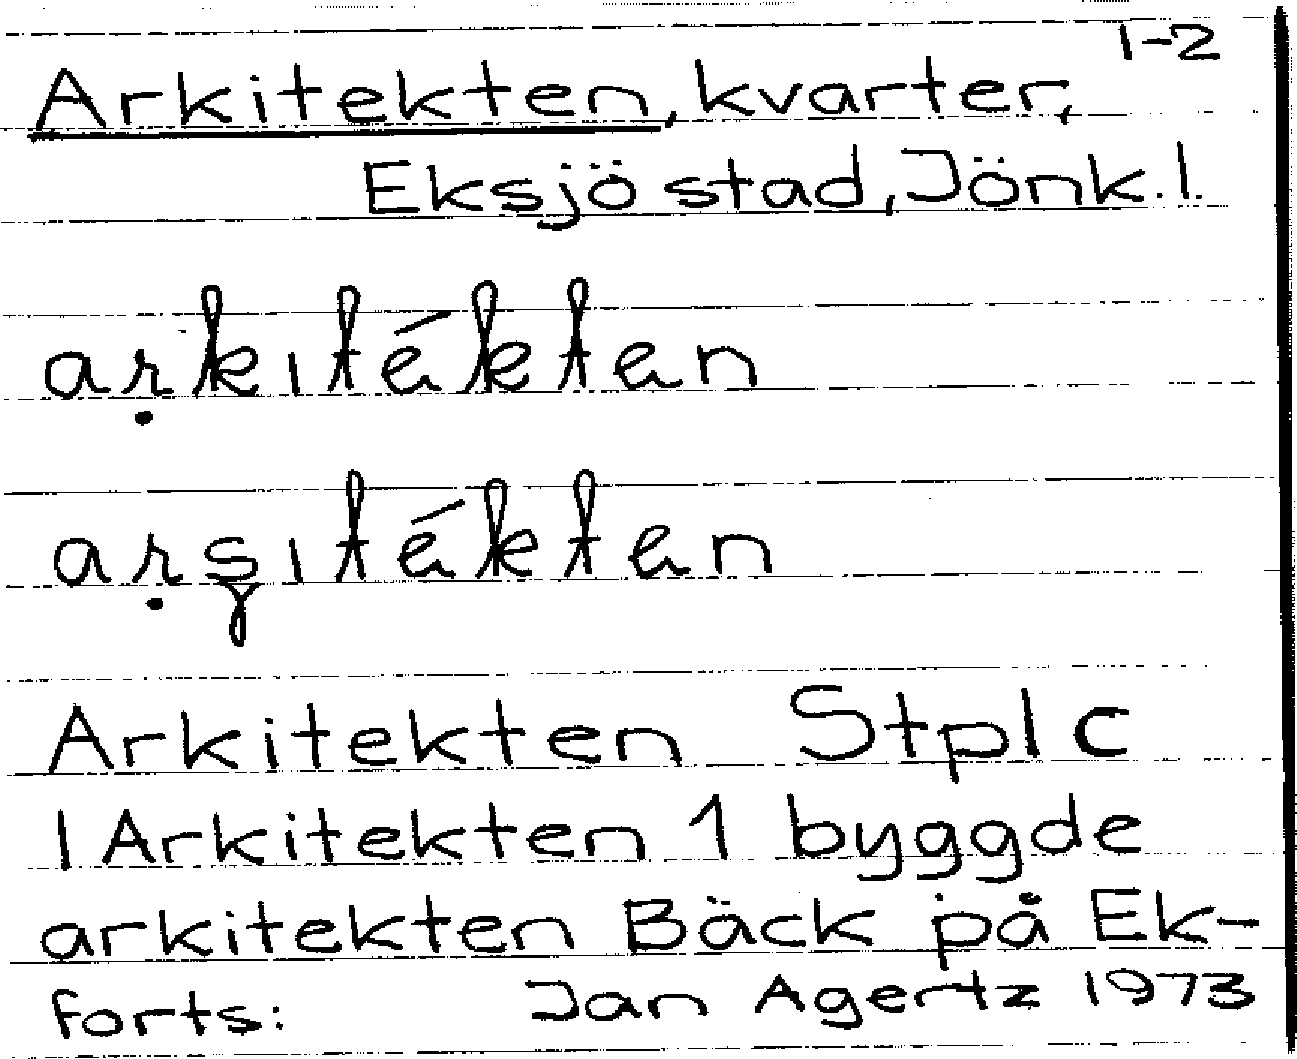 1-2
Arkitekten, kvarter,
Eksjö stad, Jönk. l.
arkitékten
arşitékten
Arkitekten Stpl c
I Arkitekten 1 byggde
arkitekten Bäck på Ek-
forts: Jan Agertz 1973